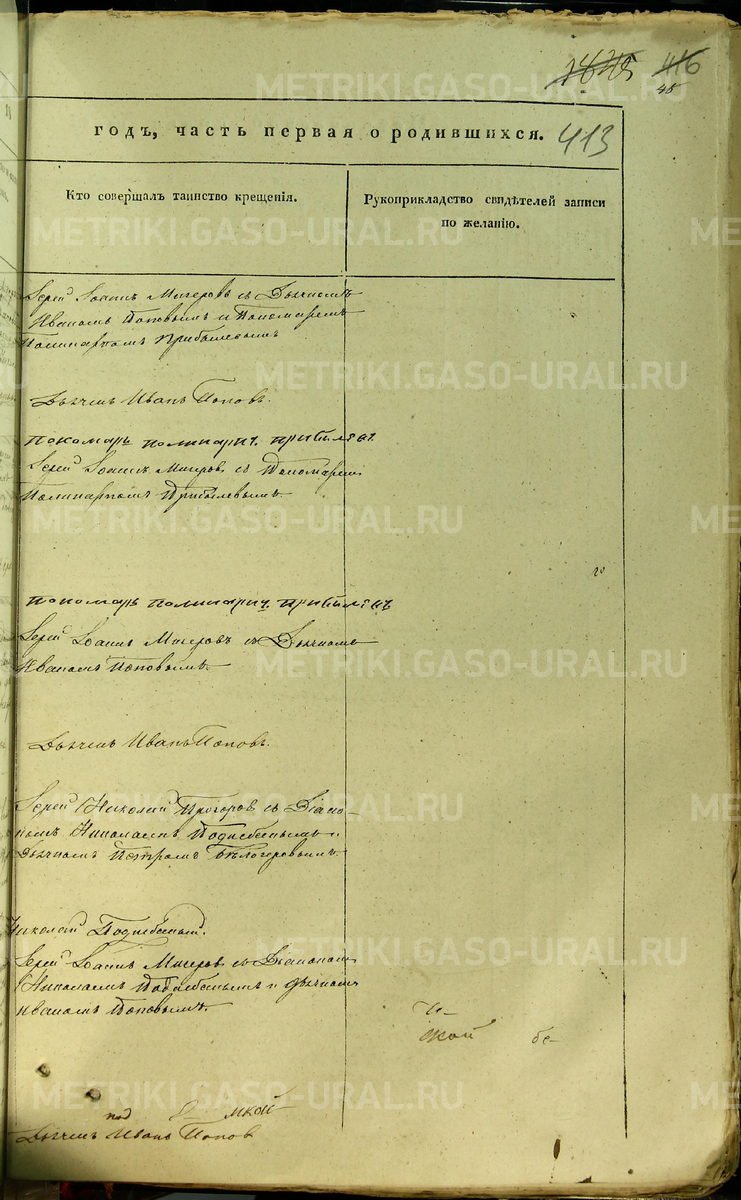 416
48
годъ, часть первая о родившихся. 413
Кто совершалъ таинство крещенія.
Рукоприкладство свидѣтелей записи
по желанію.
Іерей Іоаннъ Мичеровъ съ Дьячкомъ
Иваномъ Поповымъ и Пономаремъ
Поликарпомъ Прибылевымъ
Дьячекъ Иванъ Попов.
Пономарь Поликарп. Прибылев.
Іерей Іоаннъ Мичеров. съ Пономарем.
Поликарпомъ Прибылевымъ.
Пономарь Поликарп. Прибылевъ
Іерей Іоаннъ Мичеровъ съ Дьячкомъ
Иваномъ Поповымъ.
Дьячекъ Иванъ Поповъ.
Іерей Николай съ Діако-
номъ Николаемъ Поднебеснымъ и
Дьячкомъ Петромъ
Николай Поднебесный.
Іерей Іоаннъ Мичеров съ Діакономъ
Николаемъ Поднебеснымъ и Дьячкомъ
Иваномъ Поповымъ.
ской бе-
под мкой
Дьячекъ Иванъ Попов
METRIKI.GASO-URAL.RU